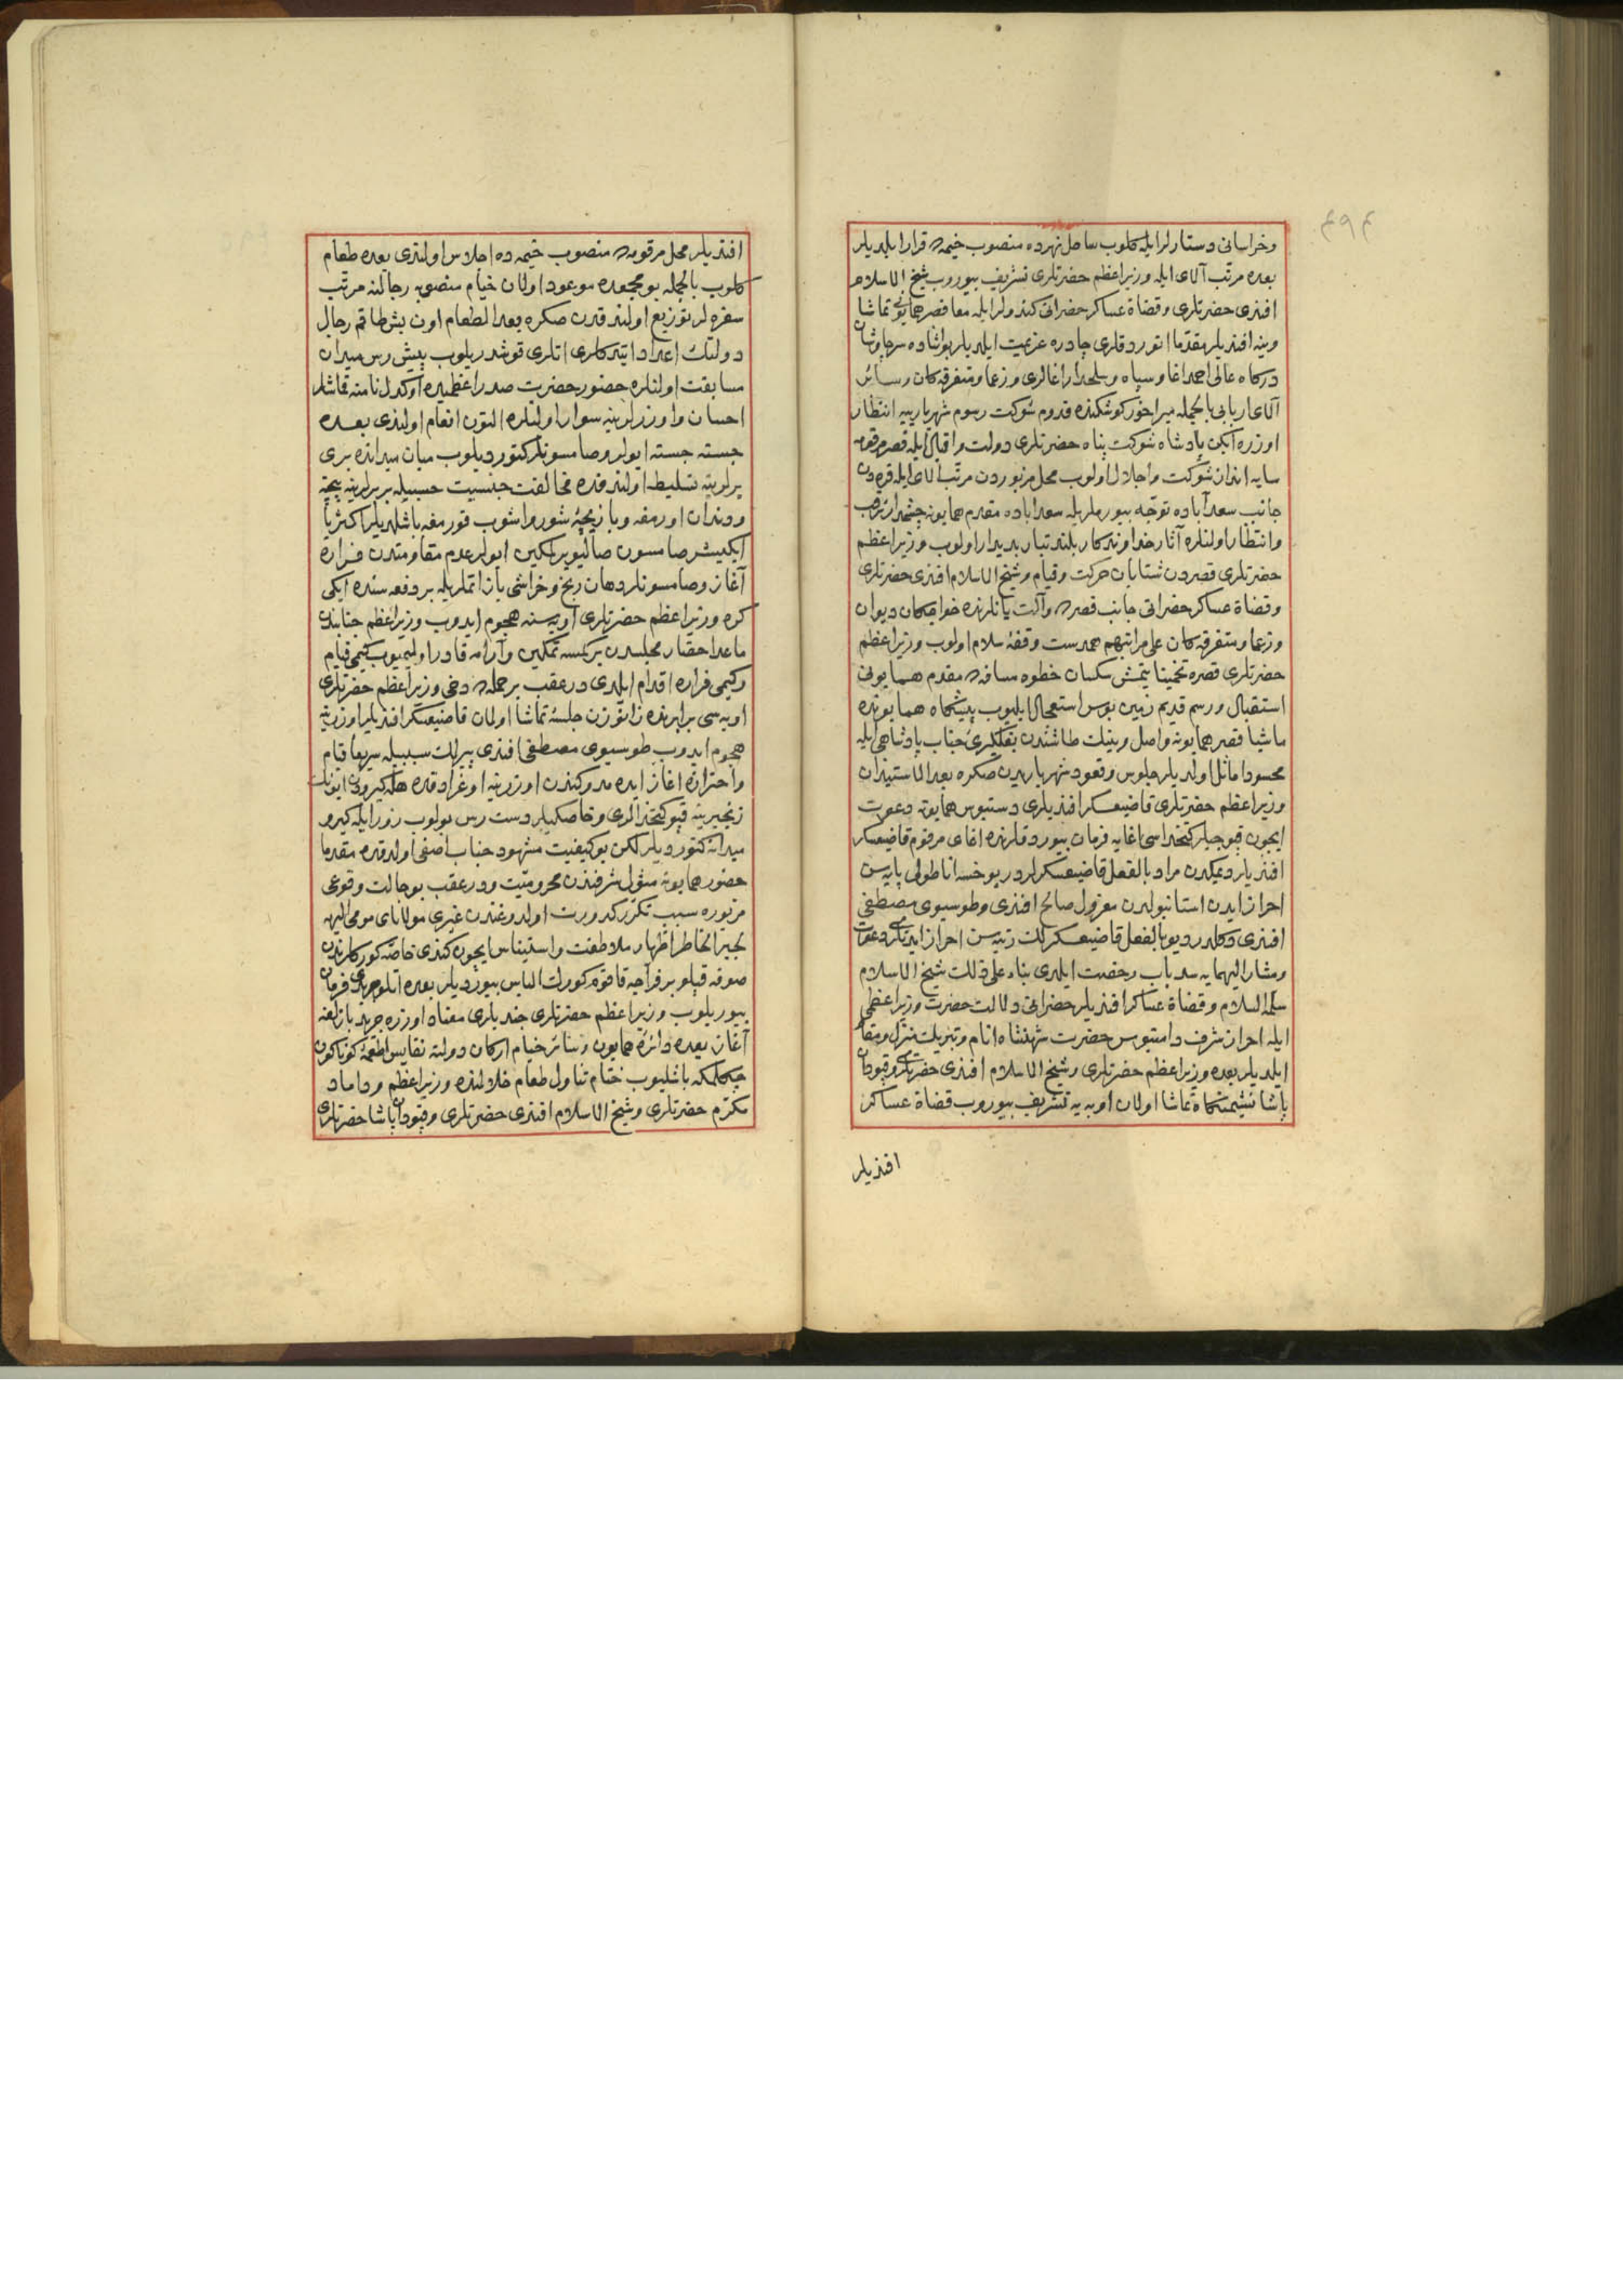 وخراسانی دستارلر ایله کلوب ساحل نهرده منصوب خیمه‌ده قرار ایلدیلر
بعده مرتب آلای ایله وزیر اعظم حضرتلری تشریف بیوروب شیخ الاسلام
افندی حضرتلری وقضاة عساکر حضراتی کندولر ایله معا قصر همایونی تماشا
وینه افندیلر مقدما اتوردقلری چادره عزیمت ایلدیلر بو اثناده سرچاوشان
درکاه عالی احمد اغا وسپاه وسلحدار اغالری وزعما ومتفرقه‌کان وسائر
آلای اربابی بالجمله میراخور کوشکنده قدوم شوکت رسوم شهریارییه انتظار
اوزره ایکن پادشاه شوکت پناه حضرتلری دولت واقبال ایله قصر مرقومه
سایه انداز شوکت واجلال اولوب محل مزبوردن مرتب آلای ایله قره‌دن
جانب سعدآباده توجه بیورملریله سعداباده مقدم همایونه چشمدار ترقب
وانتظار اولنلره آثار خداوندکار بلند تبار بدیدار اولوب وزیر اعظم
حضرتلری قصردن شتابان حرکت وقیام وشیخ الاسلام افندی حضرتلری
وقضاة عساکر حضراتی جانب قصرده وآلت یانلرنده خواجکان دیوان
وزعما ومتفرقه‌کان علی مراتبهم همدست وقفهٔ سلام اولوب وزیر اعظم
حضرتلری قصره تخمینا یتمش سکسان خطوه مسافه‌ده مقدم همایونی
استقبال ورسم قدیم زمین بوس استعجال ایلیوب پیشگاه همایونده
ماشیا قصر همایونه واصل وبنیک طاشندن بغلگیری جناب پادشاهی ایله
محسود اماثل اولدیلر جلوس وقعود شهریاریدن صکره بعد الاستیذان
وزیر اعظم حضرتلری قاضیعسکر افندیلری دستبوس همایونه دعوت
ایچون قپوجیلر کتخداسی اغایه فرمان بیوردقلرنده اغای مرقوم قاضیعسکر
افندیلر دیمکدن مراد بالفعل قاضیعسکرلردر یوخسه اناطولی پایه‌سن
احراز ایدن استانبولدن معزول صالح افندی وطوسیوی مصطفی
افندی دکلدر دیو بالفعل قاضیعسکرلک رتبه‌سن احراز ایدنلری دعوت
ومشار الیهمایه سد باب رخصت ایلدی بناء علی ذلك شیخ الاسلام
سلمه السلام وقضاة عساکر افندیلر حضراتی دلالت حضرت وزیر اعظمی
ایله احراز شرف دامنبوس حضرت شهنشاه انام وتبریک منزل ومقام
ایلدیلر بعده وزیر اعظم حضرتلری وشیخ الاسلام افندی حضرتلری وقپودان
پاشا نشیمنگاه تماشا اولان اوبه‌یه تشریف بیوروب قضاة عساکر
افندیلر
افندیلر محل مرقومده منصوب خیمه‌ده اجلاس اولندی بعده طعام
کلوب بالجمله بو مجمعده موعود اولان خیام منصوبه رجالنه مرتب
سفره‌لر توزیع اولندقدن صکره بعد الطعام اون بش طاقم رجال
دولتک اعداد ایتدکلری اتلری قوشدریلوب پیش رس میدان
مسابقت اولنلره حضور حضرت صدر اعظمیده اوکدل نامنه قماشلر
احسان واوزرلرینه سوار اولنلره التون انعام اولندی بعده
جسته جسته ایولر وصامسونلر کتوردیلوب میان میدانده بری
برلرینه تسلیط اولندقده مخالفت جنسیت حسبیله بربرلرینه پنجه
ودندان اورمغه وبازیچهٔ شور واشوب قورمغه باشلدیلر اکثریا
ایکیشر صامسون صالیویریلمکین ایولر عدم مقاومتدن فراره
آغاز وصامسونلر دهان زخم وخراشی باز اتملریله بر دفعه‌سنده ایکی
کره وزیر اعظم حضرتلری اوبه‌سنه هجوم ایدوب وزیر اعظم جنابندن
ماعدا حضار مجلسدن برکمسه تمکین وآرامه قادر اولمیوب کیمی قیام
وکیمی فراره اقدام ایلدی درعقب بر حمله‌ده دخی وزیر اعظم حضرتلری
اوبه‌سی برابرنده زانوزن جلسهٔ تماشا اولان قاضیعسکر افندیلر اوزرینه
هجوم ایدوب طوسیوی مصطفی افندی پیرلک سببیله سریعا قیام
واحترازه اغاز ایده‌مدوکندن اوزرینه اوغرادقده همان کیرودن ایونک
زنجیرینه قپو کتخدالری وخاصکیلر دست رس بولوب زور ایله کیرو
میدانه کتوردیلر لکن بو کیفیت مشهود جناب اصفی اولدقده مقدما
حضور همایونه مثول شرفندن محرومیت ودرعقب بو حالت وقوعی
مزبوره سبب تکرر کدورت اولدوغندن غیری مولانای مومی الیهه
تجبیر الخاطر اظهار ملاطفت واستیناس ایچون کندی خاصه کورکلرندن
صوفه قپلو بر فراجه قاقوم کورک الباس بیوردیلر بعده اتلو جریده فرمان
بیوریلوب وزیر اعظم حضرتلری جندیلری معتاد اوزره جرید بازلغه
آغاز بعده دائرهٔ همایون وسائر خیام ارکان دولته نفایس اطعمهٔ کوناکون
چکلمکه باشلیوب ختام تناول طعام خلالنده وزیر اعظم وداماد
مکرم حضرتلری وشیخ الاسلام افندی حضرتلری وقپودان پاشا حضرتلری